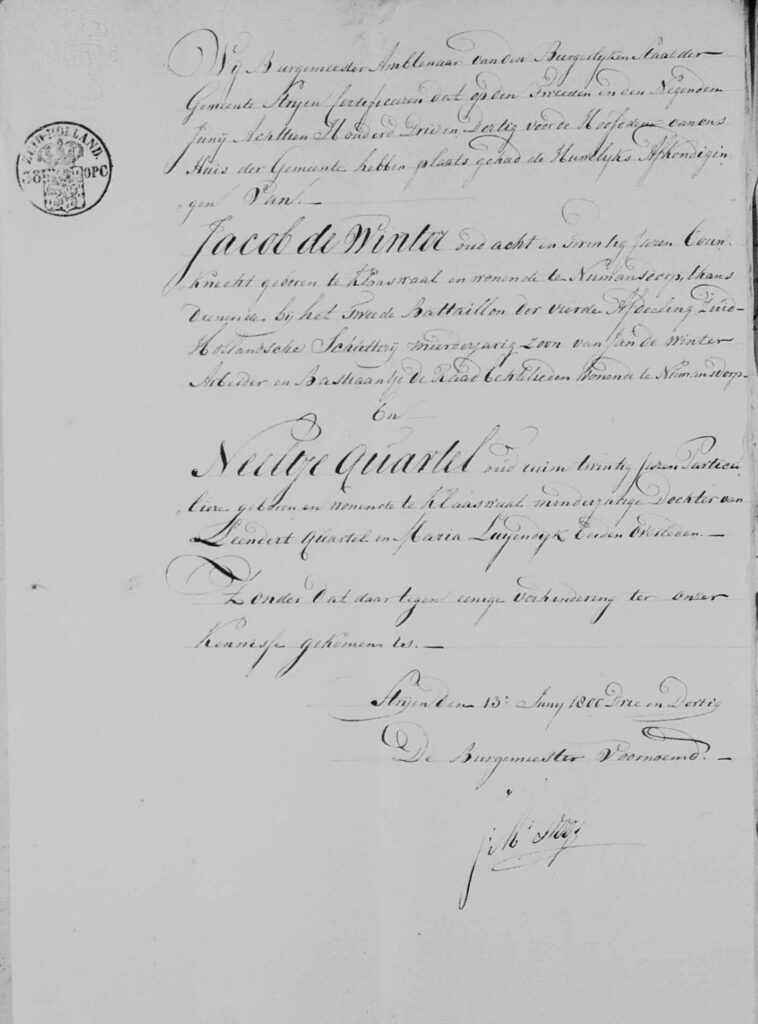 ZUID-HOLLAND.
38 OPC
Wij Burgemeester Ambtenaar van den Burgerlyken Staat der
Gemeente Strijen certificeren dat op den Tweeden en den Negenden
Junij Achttien Honderd Drie en Dertig voor de Hoofddeur van ons
Huis der Gemeente hebben plaats gehad de Huwelijks Afkondigin
gen Van.—
Jacob de Winter oud acht en twintig Jaren Bouw-
Knecht geboren te Klaaswaal en wonende te Numansdorp, thans
dienende bij het Tweede Battaillon der vierde Afdeeling Zuid-
Hollandsche Schutterij meerderjarig Zoon van Jan de Winter
Arbeider en Bastiaantje de Raad Echtelieden wonende te Numansdorp—
En
Neeltje Quartel oud ruim twintig Jaren Particu
liere geboren en wonende te Klaaswaal minderjarige Dochter van
Leendert Quartel en Maria Luijendijk beiden overleden.—
Zonder dat daar tegen eenige verhindering ter onzer
Kennisse gekomen is.—
Strijen den 13e Juny 1800 Drie en Dertig
De Burgemeester Voornoemd.—